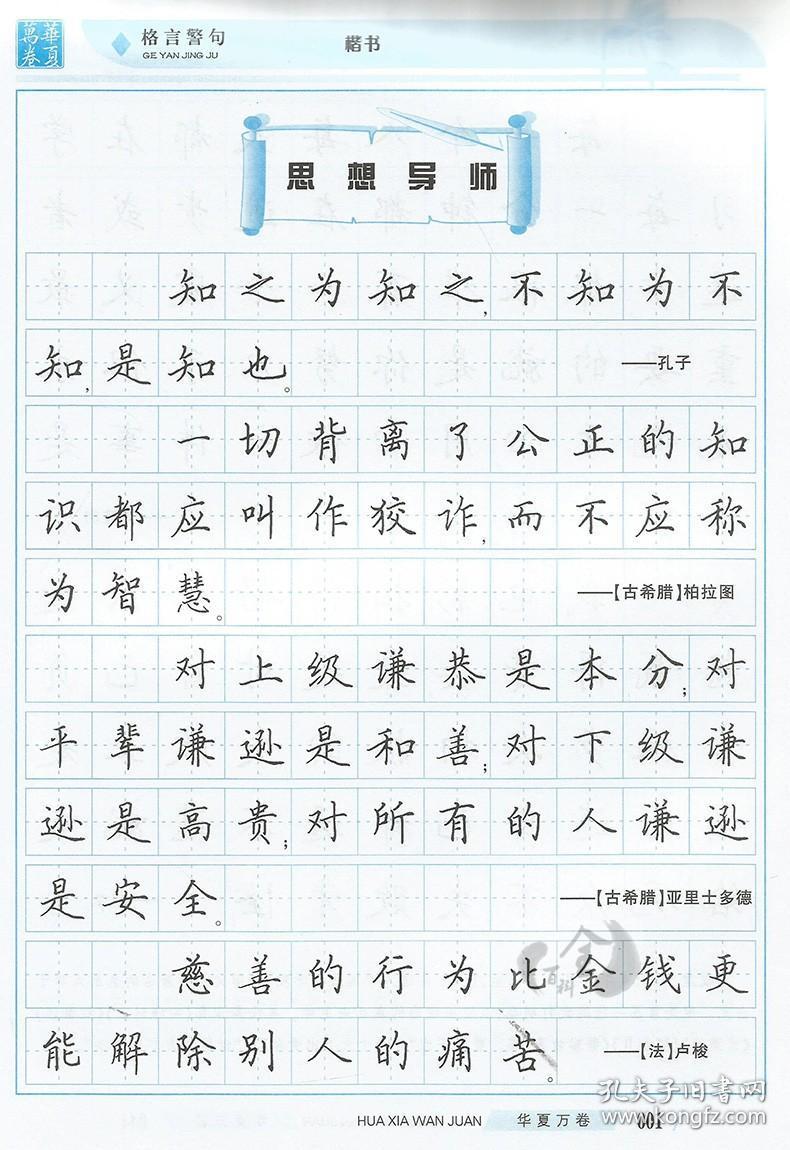 華夏萬卷
格言警句
GE YAN JING JU
楷书
思想导师
知之为知之,不知为不
知,是知也。 ——孔子
一切背离了公正的知
识都应叫作狡诈,而不应称
为智慧。 ——【古希腊】柏拉图
对上级谦恭是本分;对
平辈谦逊是和善;对下级谦
逊是高贵;对所有的人谦逊
是安全。 ——【古希腊】亚里士多德
慈善的行为比金钱更
能解除别人的痛苦。 ——【法】卢梭
HUA XIA WAN JUAN 华夏万卷 001
孔夫子旧书网
www.kongfz.com